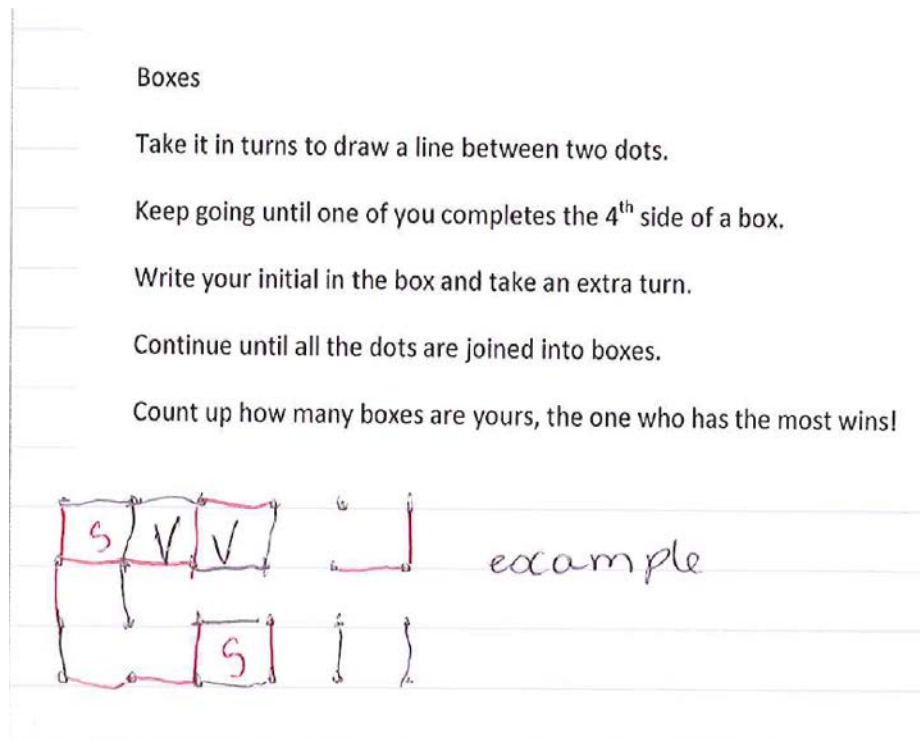 Boxes
Take it in turns to draw a line between two dots.
Keep going until one of you completes the 4th side of a box.
Write your initial in the box and take an extra turn.
Continue until all the dots are joined into boxes.
Count up how many boxes are yours, the one who has the most wins!
S V V
example
S